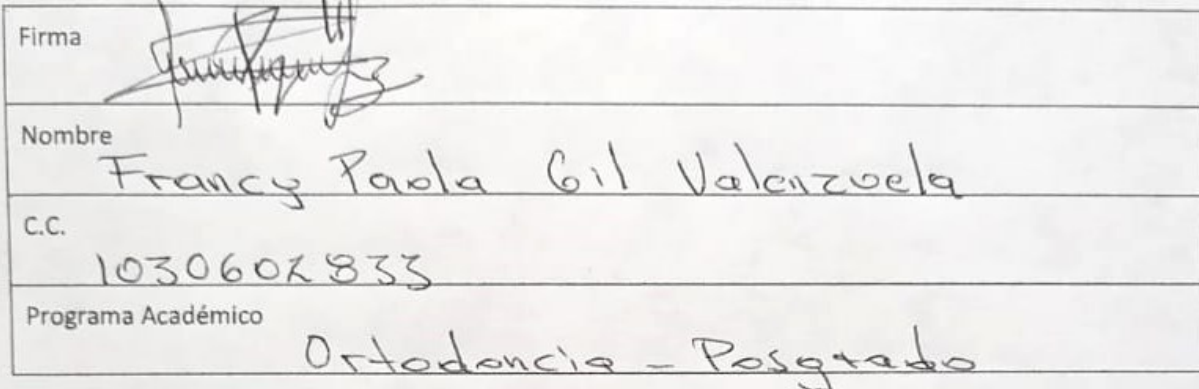 Firma
Nombre
Francy Paola Gil Valenzuela
C.C.
1030602833
Programa Académico
Ortodoncia - Posgrado